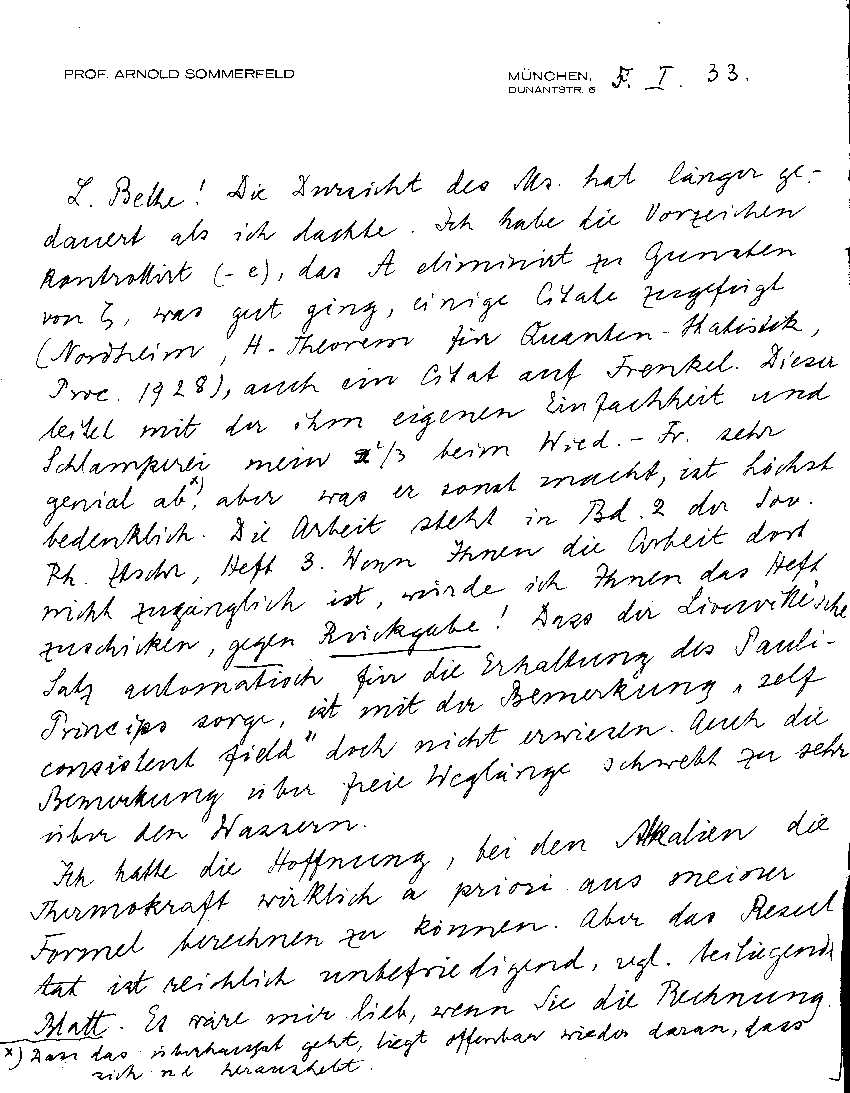 PROF. ARNOLD SOMMERFELD
MÜNCHEN, 5. I. 33.
DUNANTSTR. 6
L. Bethe! Die Durzicht des Ms. hat länger ge-
dauert als ich dachte. Ich habe die Vorzeichen
kontrollirt (-e), das A eliminirt zu Gunsten
von ζ, was gut ging, einige Citate zugefügt
(Nordheim, H-Theorem für Quanten-Statistik,
Proc. 1928), auch ein Citat auf Frenkel. Dieser
leitet mit der ihm eigenen Einfachheit und
Schlamperei mein π²/3 beim Wied.-Fr. sehr
genial ab x), aber was er sonst macht, ist höchst
bedenklich. Die Arbeit steht in Bd. 2 der Sov.
Ph. Ztschr, Heft 3. Wenn Ihnen die Arbeit dort
nicht zugänglich ist, würde ich Ihnen das Heft
zuschicken, gegen Rückgabe! Dass der Liouville'sche
Satz automatisch für die Erhaltung des Pauli-
Princips sorge, ist mit der Bemerkung „self
consistent field" doch nicht erwiesen. Auch die
Bemerkung über freie Weglänge schwebt zu sehr
über den Wassern.
Ich hatte die Hoffnung, bei den Alkalien die
Thermokraft wirklich a priori aus meiner
Formel berechnen zu können. Aber das Resul
tat ist reichlich unbefriedigend, vgl. beiliegendes
Blatt. Es wäre mir lieb, wenn Sie die Rechnung
x) Dass das überhaupt geht, liegt offenbar wieder daran, dass
sich heraushebt.